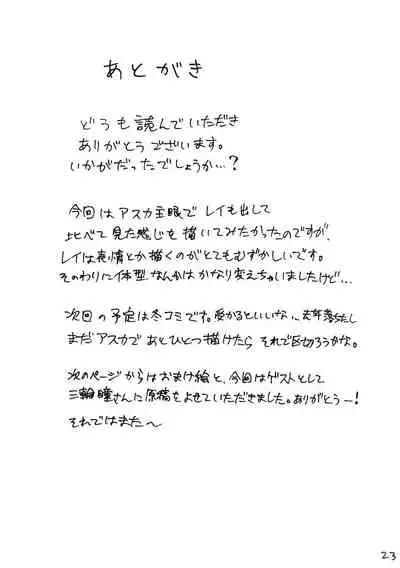 あとがき
どうも読んでいただき
ありがとうございます。
いかがだったでしょうか…?
今回はアスカ主眼でレイも出して
比べて見た感じを描いてみたかったのですが、
レイは表情とか描くのがとてもむずかしいです。
そのわりに体型なんかはかなり変えちゃいましたけど…
次回の予定は冬コミです。受かるといいな、去年落ちたし
まだアスカであとひとつ描けたらそれで区切ろうかな。
次のページからはおまけ絵と、今回はゲストとして
三輪瞳さんに原稿をよせていただきました。ありがとうー!
それではまた～
23